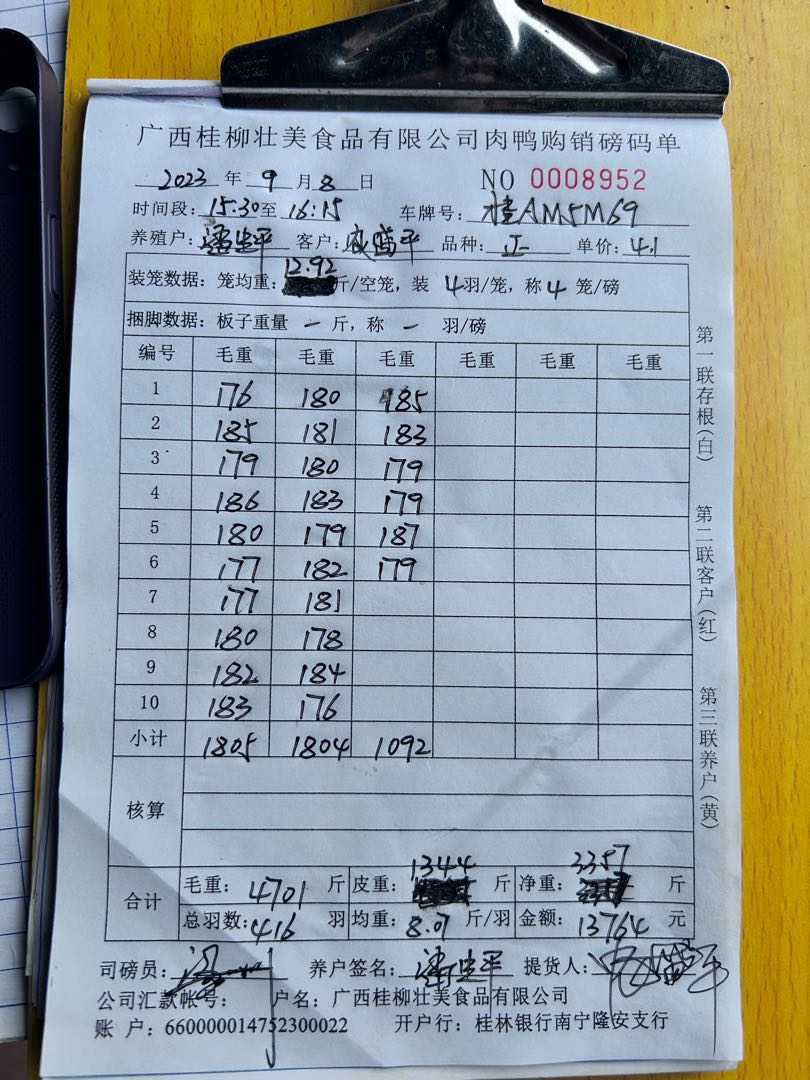 广西桂柳壮美食品有限公司肉鸭购销磅码单
2023 年 9 月 8 日 NO 0008952
时间段: 15:30 至 16:15 车牌号: 桂AM5M69
养殖户: 客户: 品种: 正 单价: 4.1
装笼数据: 笼均重: 12.92 斤/空笼, 装 4 羽/笼, 称 4 笼/磅
捆脚数据: 板子重量 一 斤, 称 一 羽/磅
编号 毛重 毛重 毛重 毛重 毛重 毛重
1 176 180 185
2 185 181 183
3 179 180 179
4 186 183 179
5 180 179 187
6 177 182 179
7 177 181
8 180 178
9 182 184
10 183 176
小计 1805 1804 1092
核算
合计 毛重: 4701 斤 皮重: 1344 斤 净重: 3357 斤
总羽数: 416 羽 均重: 8.07 斤/羽 金额: 13764 元
司磅员: 养户签名: 提货人:
公司汇款帐号: 户名: 广西桂柳壮美食品有限公司
账 户: 660000014752300022 开户行: 桂林银行南宁隆安支行
第一联存根(白)
第二联客户(红)
第三联养户(黄)